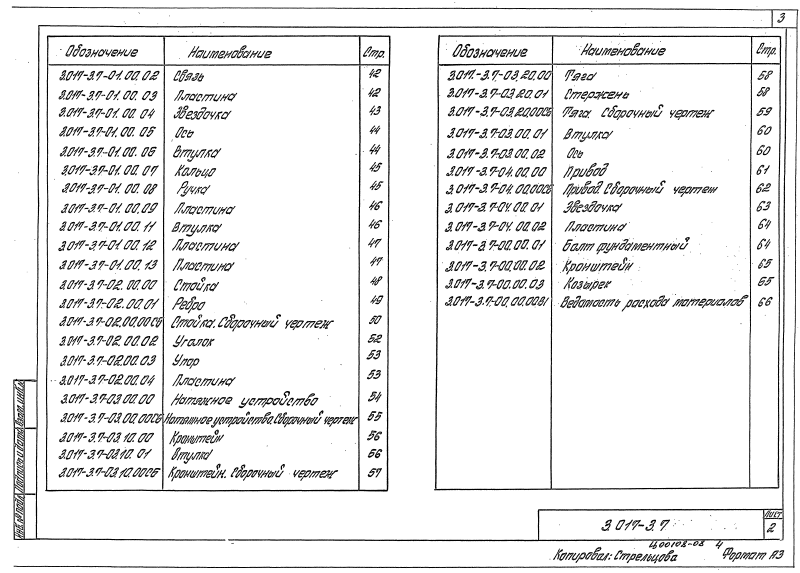 3
Обозначение Наименование Стр.
3.017-3.7-01.00.02 Связь 42
3.017-3.7-01.00.03 Пластина 42
3.017-3.7-01.00.04 Звездочка 43
3.017-3.7-01.00.05 Ось 44
3.017-3.7-01.00.06 Втулка 44
3.017-3.7-01.00.07 Кольцо 45
3.017-3.7-01.00.08 Ручка 45
3.017-3.7-01.00.09 Пластина 46
3.017-3.7-01.00.11 Втулка 46
3.017-3.7-01.00.12 Пластина 47
3.017-3.7-01.00.13 Пластина 47
3.017-3.7-02.00.00 Стойка 48
3.017-3.7-02.00.01 Ребро 49
3.017-3.7-02.00.00СБ Стойка. Сборочный чертеж 50
3.017-3.7-02.00.02 Уголок 52
3.017-3.7-02.00.03 Упор 53
3.017-3.7-02.00.04 Пластина 53
3.017-3.7-03.00.00 Натяжное устройство 54
3.017-3.7-03.00.00СБ Натяжное устройство. Сборочный чертеж 55
3.017-3.7-03.10.00 Кронштейн 56
3.017-3.7-03.10.01 Втулка 56
3.017-3.7-03.10.00СБ Кронштейн. Сборочный чертеж 57
Обозначение Наименование Стр.
3.017-3.7-03.20.00 Тяга 58
3.017-3.7-03.20.01 Стержень 58
3.017-3.7-03.20.00СБ Тяга Сборочный чертеж 59
3.017-3.7-03.00.01 Втулка 60
3.017-3.7-03.00.02 Ось 60
3.017-3.7-04.00.00 Привод 61
3.017-3.7-04.00.00СБ Привод. Сборочный чертеж 62
3.017-3.7-04.00.01 Звездочка 63
3.017-3.7-04.00.02 Пластина 64
3.017-3.7-00.00.01 Болт фундаментный 64
3.017-3.7-00.00.02 Кронштейн 65
3.017-3.7-00.00.03 Козырек 65
3.017-3.7-00.00.00В1 Ведомость расхода материалов 66
Инв. № подл. Подпись и дата Взам. инв. №
3.017-3.7
Лист
2
Ц00102-02 4
Копировал: Стрельцова Формат А3